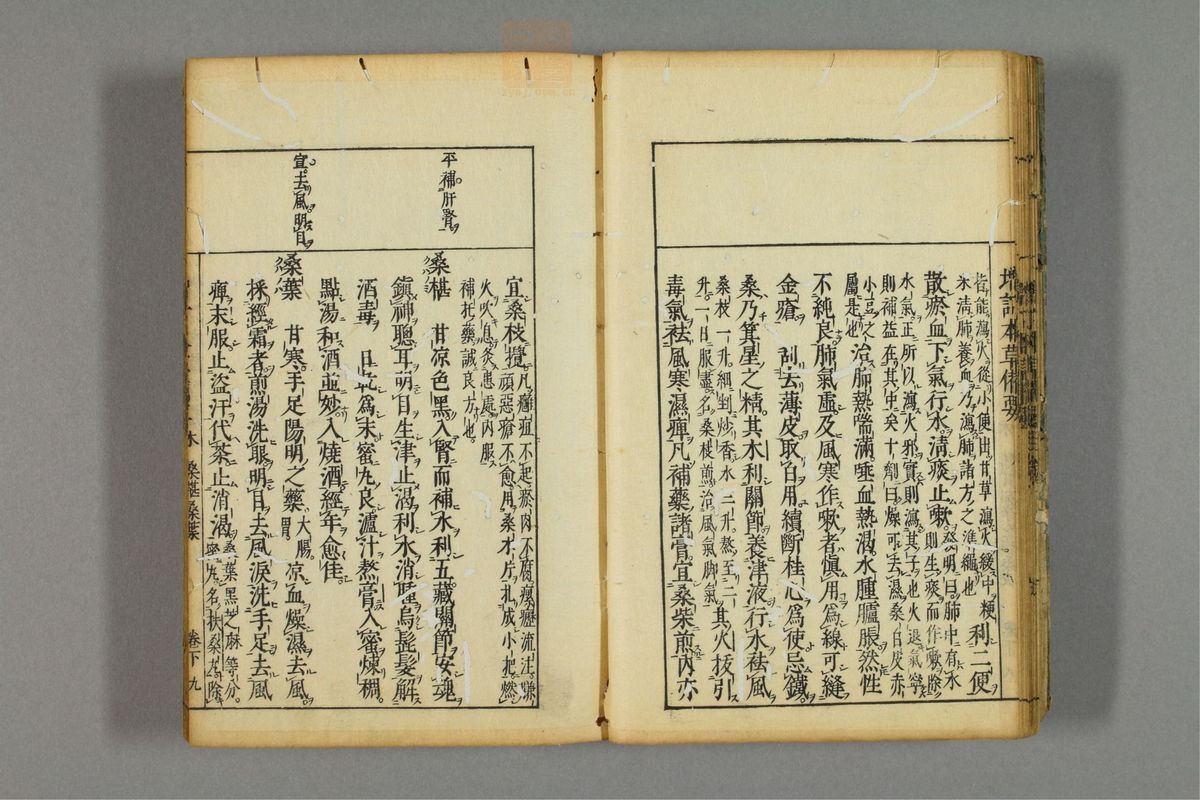 增訂本草備要
皆能瀉火從小便出甘草瀉火緩中粳
米清肺養血乃瀉肺諸方之準繩也利二便
散瘀血下氣行水清痰止嗽發明曰肺中有水則生痰而作嗽除
水氣正所以瀉火邪實則瀉其子也火退氣寧
則補益在其中矣十劑曰燥可去濕桑白皮赤
小豆之屬是也治肺熱喘滿唾血熱渴水腫臚脹然性
不純良肺氣虛及風寒作嗽者慎用為線可縫
金瘡刮去薄皮取白用續斷桂心為使忌鐵
桑乃箕星之精其木利關節養津液行水袪風
桑枝一升細剉炒香水三升熬至二升一日服盡名桑枝煎治風氣脚氣其火拔引
毒氣袪風寒濕痺凡補藥諸膏宜桑柴煎內亦
宜桑枝攪凡癰疽不起瘀肉不腐瘰癧流注臁頑惡瘡不愈用桑木片扎成小把燃
火吹息灸患處內服
補托藥誠良方也
平補肝腎
桑椹 甘凉色黑入腎而補水利五藏關節安魂
鎮神聰耳明目生津止渴利水消腫烏髭髮解
酒毒日乾為末蜜丸良瀘汁熬膏入蜜煉稠
點湯和酒並妙入燒酒經年愈佳
宜去風明目
桑葉 甘寒手足陽明之藥大腸胃凉血燥濕去風
採經霜者煎湯洗眼明目去風淚洗手足去風
痺末服止盜汗代茶止消渴桑葉黑芝麻等分蜜丸名扶桑丸除
木 桑椹桑葉 卷三下 九